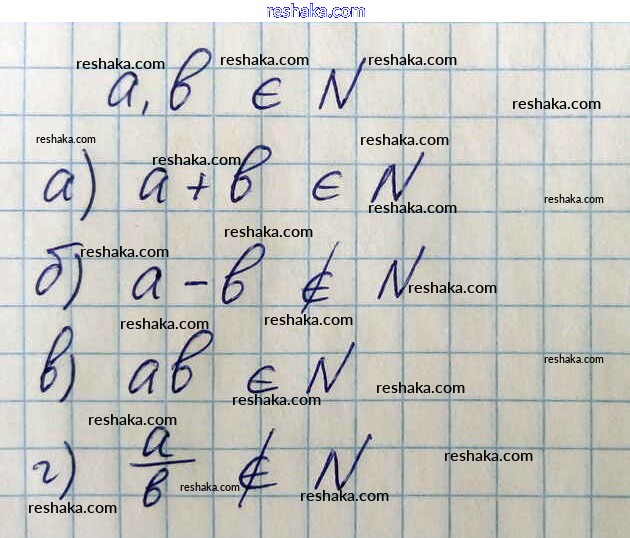 reshaka.com
reshaka.com reshaka.com reshaka.com
a, b ∈ N
reshaka.com
reshaka.com reshaka.com
reshaka.com
а) a + b ∈ N
reshaka.com reshaka.com
reshaka.com
reshaka.com
б) a - b ∉ N
reshaka.com
reshaka.com reshaka.com
reshaka.com
в) ab ∈ N
reshaka.com reshaka.com
reshaka.com
г) a/b ∉ N
reshaka.com
reshaka.com reshaka.com
reshaka.com